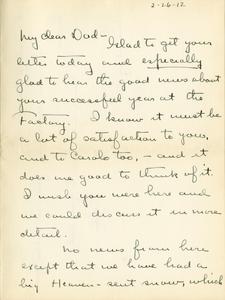 2-26-12
My dear Dad -
Glad to get your
letter today and especially
glad to hear the good news about
your successful year at the
Factory. I know it must be
a lot of satisfaction to you,
and to Carolo too, - and it
does me good to think of it.
I wish you were here and
we could discuss it in more
detail.
No news from here
except that we have had a
big Heaven-sent snow, which